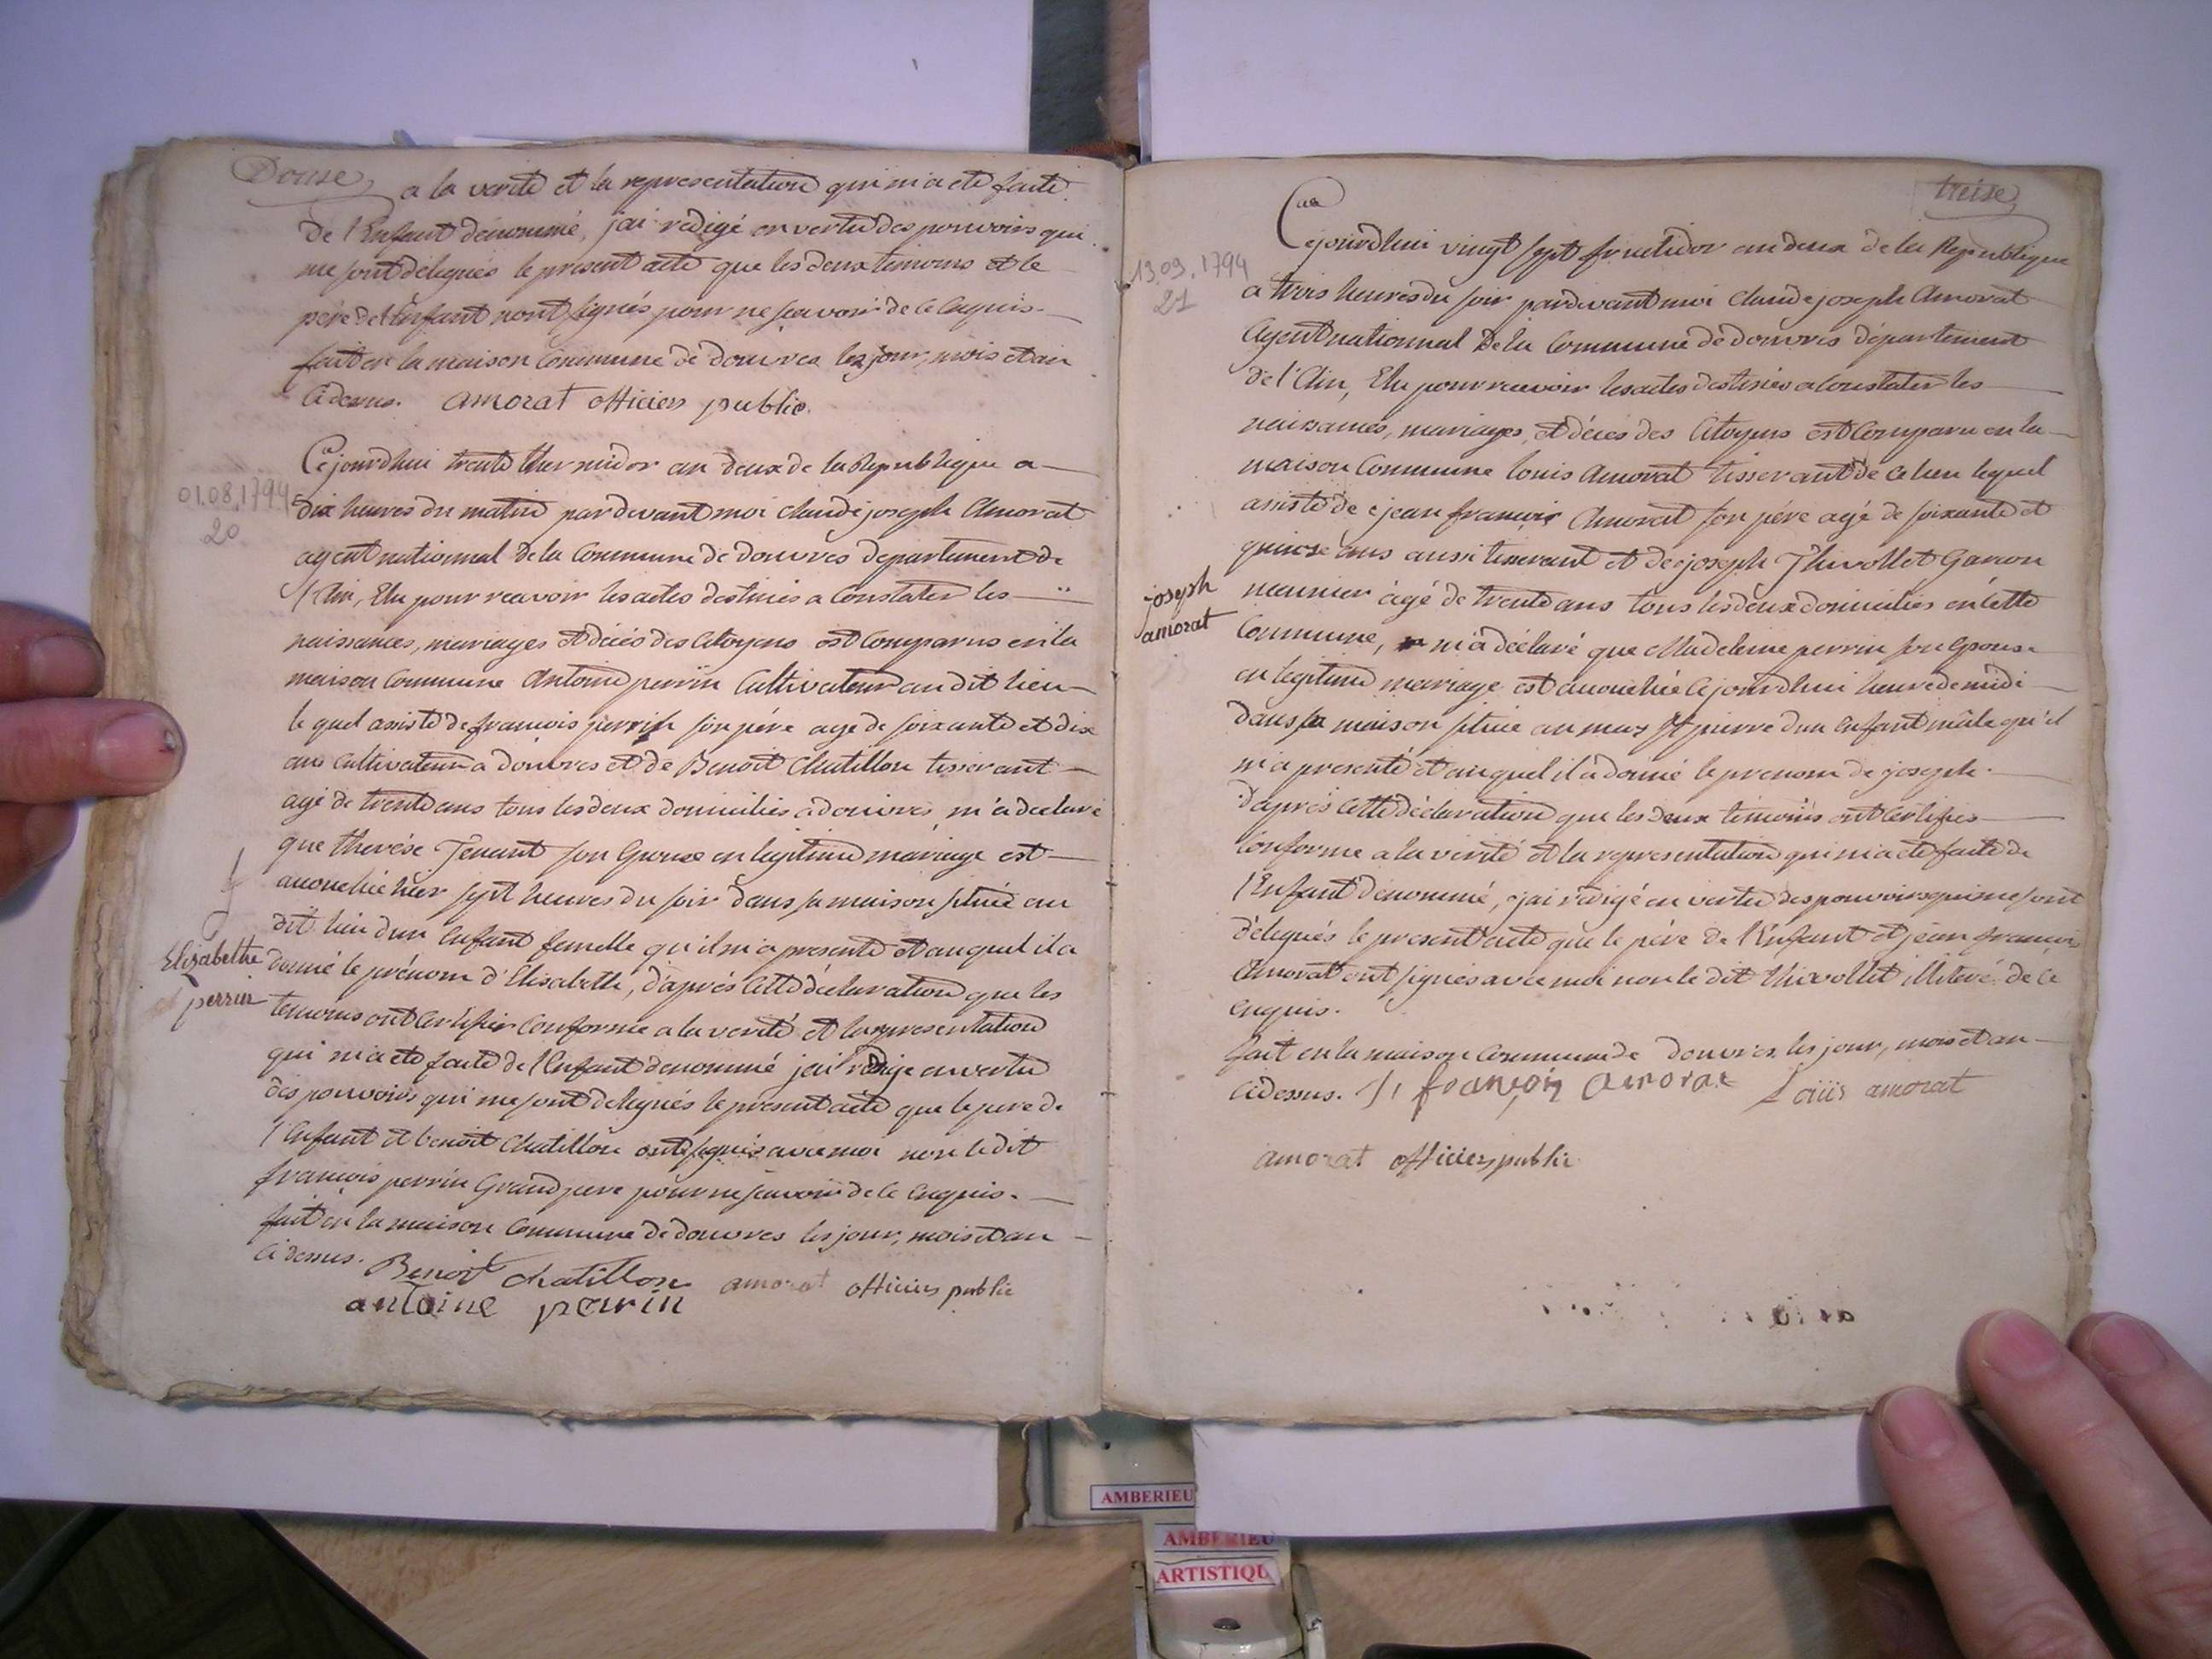 Douse
a la verité et la representation qui m'a eté faite
De l'Enfant dénommé, j'ai redigé en vertu des pouvoirs qui
me sont délegués le present acte que les deux temoins et le
pére de l'Enfant n'ont signés pour ne sçavoir de ce Enquis.
fait en la maison Commune de douvres les jour, mois et an
Cidessus. amorat officier public
01.08.1794
20
Cejourdhui trente thermidor an deux de la Republique a
dix heures du matin pardevant moi Claude joseph Amorat
agent national de la Commune de douvres departement de
l'Ain, Elu pour recevoir les actes destinés a Constater les
naissances, mariages et décés des Citoyens est Comparus en la
maison Commune Antoine perrin Cultivateur au dit lieu
le quel assisté de francois perrin son pére agé de soixante et dix
ans Cultivateur a douvres et de Benoit Chatillon tisserant
agé de trente ans tous les deux domiciliés a douvres, m'a declaré
que therése Tenant son Epouse en legitime mariage est
accouchée hier sept heures du soir dans sa maison située au
dit lieu d'un Enfant femelle qu'il m'a presenté et auquel il a
Elizabethe
perrin
donné le prénom d'Elisabette, d'aprés Cette déclaration que les
temoins ont Certifier Conforme a la verité et la representation
qui m'a eté faite de l'Enfant denommé jai redigé en vertu
des pouvoirs qui me sont delegués le present acte que le pere de
l'Enfant et benoit Chatillon ont signés avec moi non le dit
francois perrin Grand pere pour ne sçavoir de ce Enquis.
fait en la maison Commune de douvres les jour, mois et an
Cidessus. Benoit chatillon amorat officier public
antoine perrin
treise
13.09.1794
21
Cejourdhui vingt sept fructidor an deux de la Republique
a trois heures du soir pardevant moi Claude joseph Amorat
Agent nationnal de la Commune de douvres département
de l'Ain, Elu pour recevoir les actes destinés a Constater les
naissances, mariages, et décés des Citoyens est Comparu en la
maison Commune louis Amorat tisserant de ce lieu lequel
assisté de jean francois Amorat son pére agé de soixante et
quinze ans aussi tisserant et de joseph Thivollet Garcon
joseph
amorat
meunier agé de trente ans tous les deux domiciliés en Cette
Commune, m'a déclaré que Madeleine perrin son Epouse
en legitime mariage est accouchée Cejourdhui heure de midi
dans sa maison située au mas st pierre d'un Enfant mâle qu'il
m'a presenté et auquel il a donné le prenom de joseph.
d'aprés Cette déclaration que les deux témoins ont Certifiés
Conforme a la vérité et la representation qui m'a eté faite de
l'Enfant dénommé, j'ai redigé en vertu des pouvoirs qui me sont
délegués le present acte que le pére de l'Enfant et jean francois
Amorat ont signés avec moi non le dit thivollet illiteré de ce
enquis.
fait en la maison Commune de douvres les jour, mois et an
Cidessus. françois amorat Loüis amorat
amorat officier public
AMBERIEU
AMBERIEU
ARTISTIQU